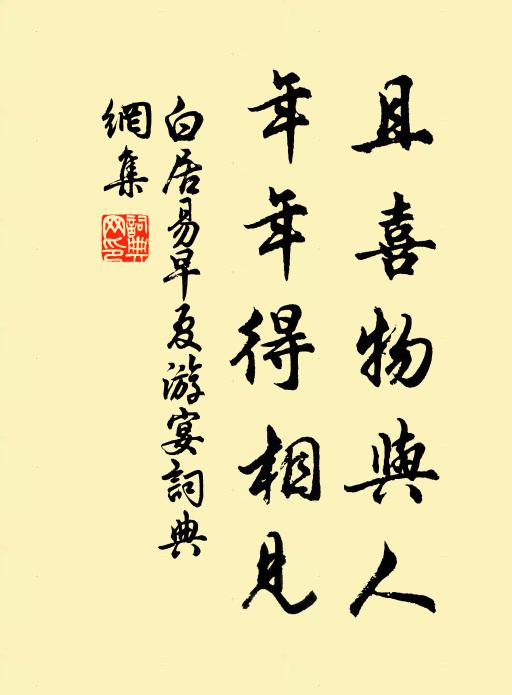 且喜物與人
年年得相見
白居易早夏游宴詞典
網集
詞典
网印